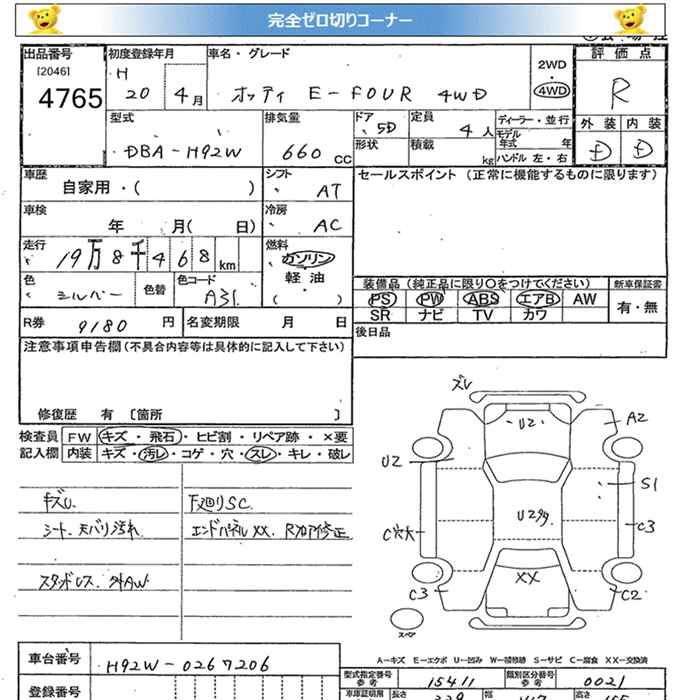 完全ゼロ切りコーナー
出品番号 初度登録年月 車名・グレード 2WD 評価点
[2046] H
4765 20 4月 オッティ E-FOUR 4WD 4WD R
型式 排気量 ドア 定員 ディーラー・並行 外装 内装
DBA-H92W 660 CC 5D 4人 モデル年式 年 D D
形状 積載 kg ハンドル 左・右
車歴 シフト セールスポイント (正常に機能するものに限ります)
自家用・( ) AT
車検 冷房
年 月( 日) AC
走行 燃料
19万8千468km ガソリン
色 色替 色コード 軽油
シルバー A31 ( )
装備品 (純正品に限り○をつけてください) 新車保証書
PS PW ABS エアB AW 有・無
SR ナビ TV カワ
R券 9180 円 名変期限 月 日
後日品
注意事項申告欄(不具合内容等は具体的に記入して下さい)
修復歴 有 [箇所 ]
検査員 FW キズ・飛石・ヒビ割・リペア跡・×要
記入欄 内装 キズ・汚レ・コゲ・穴・スレ・キレ・破レ
キズU. 下廻りSC.
シート.天バリ汚れ エンドパネルXX. Rフロア修正
スタッドレス.外AW
ズレ
U2
A2
U2
S1
U2多
C穴大
C3
XX
C3
C2
スペア
A-キズ E-エクボ U-凹み W-補修跡 S-サビ C-腐食 XX-交換済
車台番号 H92W-0267206
型式指定番号 参考 15411 類別区分番号 参考 0021
登録番号
車庫証明用 長さ 幅 高さ